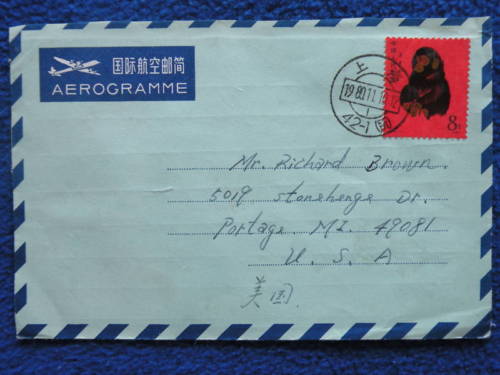 国际航空邮简
AEROGRAMME
上海
1980.11.1
42-1(50)
8分
Mr. Richard Brown.
5019 stonehenge Dr.
Portage MI. 49081
U. S. A
美国